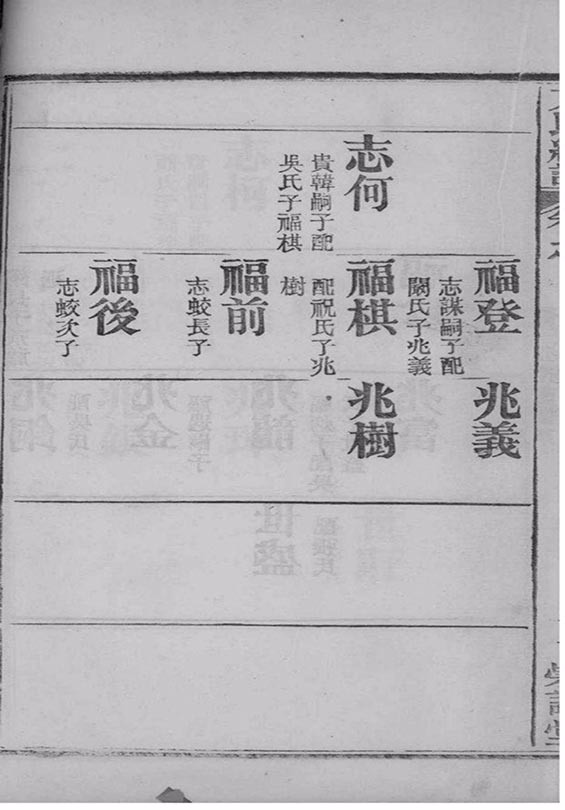 志何
貴韓嗣子配
吳氏子福棋
福登
志謀嗣子配
闕氏子兆義
福棋
配祝氏子兆
樹
福前
志蛟長子
福後
志蛟次子
兆義
兆樹